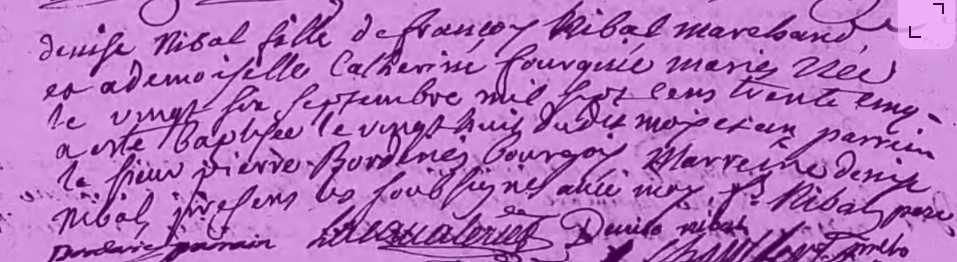 denise Nibal fille de françoy Nibal marchand
et ademoiselle Catherine fourquié mariés née
le vingt six septembre mil sept cens trente cinq
a esté baptisée le vingt huit dudit mois et an parrain
le sieur pierre Borderies bourgois Marreine denise
Nibal, presens les soubsignes avec moy. fs. Nibal pere
parrain Denise nibal